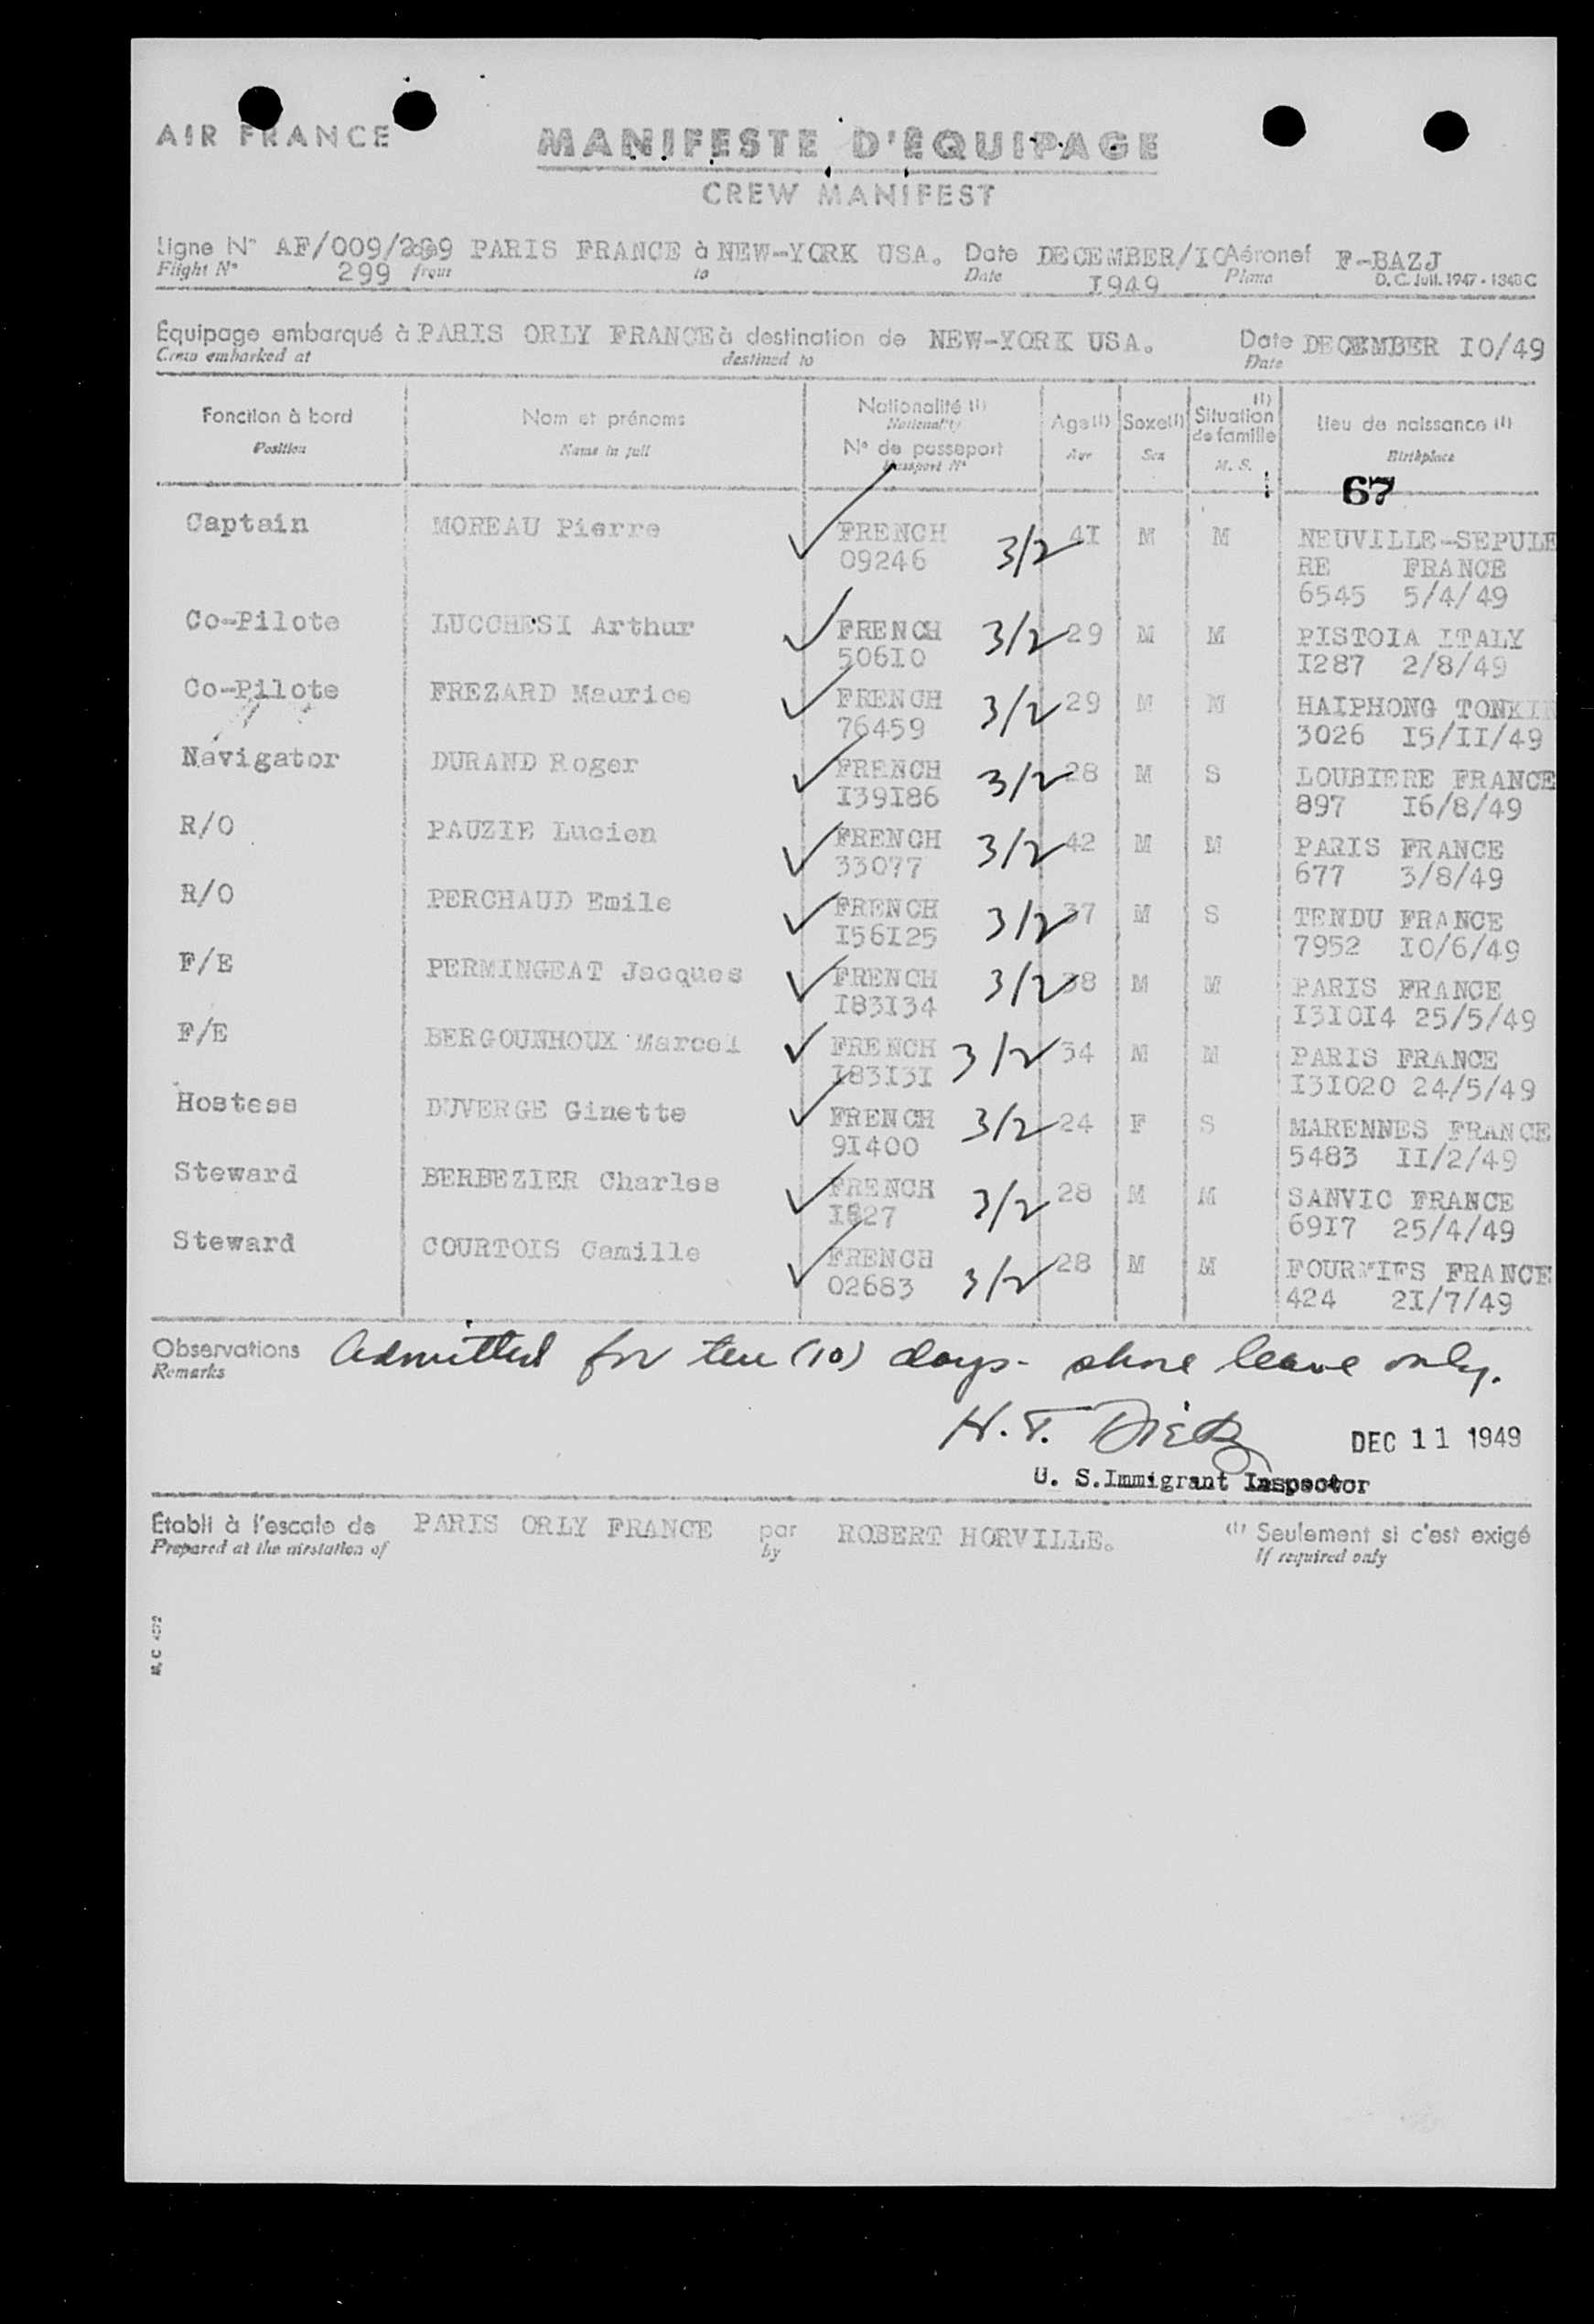 AIR FRANCE
MANIFESTE D'ÉQUIPAGE
CREW MANIFEST
Ligne N° AF/009/299 PARIS FRANCE à NEW-YORK USA. Date DECEMBER/IO Aéronef F-BAZJ
Flight N° 299 from to Date I949 Plane D.C. Juil. 1947 - 1348 C
Equipage embarqué à PARIS ORLY FRANCE à destination de NEW-YORK USA. Date DECEMBER IO/49
Crew embarked at destined to Date
Fonction à bord Nom et prénoms Nationalité (1) Age (1) Sexe (1) Situation de famille (1) Lieu de naissance (1)
Position Name in full Nationality Age Sex M. S. Birthplace
N° de passeport
Passport N°
67
Captain MOREAU Pierre FRENCH 3/2 4I M M NEUVILLE-SEPULE
09246 RE FRANCE
6545 5/4/49
Co-Pilote LUCCHESI Arthur FRENCH 3/2 29 M M PISTOIA ITALY
506I0 I287 2/8/49
Co-Pilote FREZARD Maurice FRENCH 3/2 29 M M HAIPHONG TONKIN
76459 3026 I5/II/49
Navigator DURAND Roger FRENCH 3/2 28 M S LOUBIERE FRANCE
I39I86 897 I6/8/49
R/O PAUZIE Lucien FRENCH 3/2 42 M M PARIS FRANCE
33077 677 3/8/49
R/O PERCHAUD Emile FRENCH 3/2 37 M S TENDU FRANCE
I56I25 7952 I0/6/49
F/E PERMINGEAT Jacques FRENCH 3/2 38 M M PARIS FRANCE
I83I34 I3I0I4 25/5/49
F/E BERGOUNHOUX Marcel FRENCH 3/2 34 M M PARIS FRANCE
I83I3I I3I020 24/5/49
Hostess DUVERGE Ginette FRENCH 3/2 24 F S MARENNES FRANCE
9I400 5483 II/2/49
Steward BERBEZIER Charles FRENCH 3/2 28 M M SANVIC FRANCE
I827 69I7 25/4/49
Steward COURTOIS Camille FRENCH 3/2 28 M M FOURMIES FRANCE
02683 424 2I/7/49
Observations Admitted for ten (10) days - shore leave only.
Remarks
H. T. Dietz DEC 11 1949
U. S. Immigrant Inspector
Etabli à l'escale de PARIS ORLY FRANCE par ROBERT HORVILLE. (1) Seulement si c'est exigé
Prepared at the airstation of by If required only